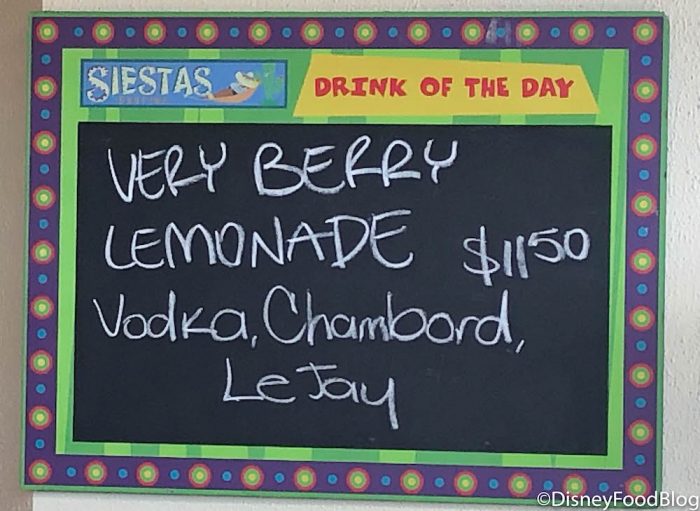 SIESTAS
DRINK OF THE DAY
VERY BERRY
LEMONADE $1150
Vodka, Chambord,
LeJay
©DisneyFoodBlog